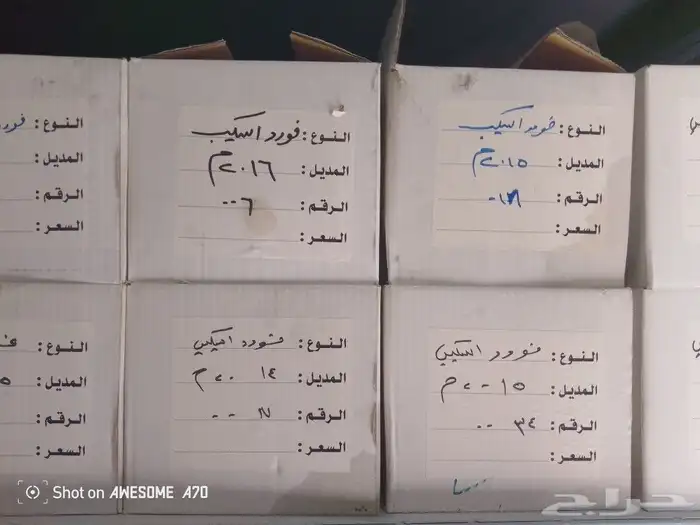 النوع: فورد اسكيب
المديل: ٢٠١٥م
الرقم:
السعر:
النوع: فورد اسكيب
المديل: ٢٠١٦م
الرقم: ٠٠٦
السعر:
النوع: فورد
المديل:
الرقم:
السعر:
النوع: فورد اسكيب
المديل: ٢٠١٥م
الرقم: ٠٠٣٤
السعر:
النوع: فورد اسكيب
المديل: ٢٠١٤م
الرقم:
السعر:
النوع:
المديل:
الرقم:
السعر:
Shot on AWESOME A70
حراج